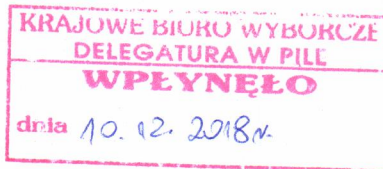 KRAJOWE BIURO WYBORCZE
DELEGATURA W PILE
WPŁYNĘŁO
dnia 10. 12. 2018r.